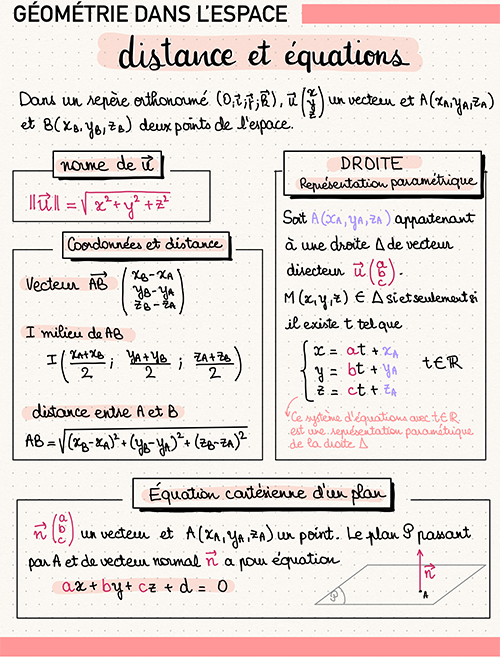 GÉOMÉTRIE DANS L'ESPACE
distance et équations
Dans un repère orthonormé (O;i⃗;j⃗;k⃗), u⃗ (x y z) un vecteur et A(xA,yA,zA)
et B(xB,yB,zB) deux points de l'espace.
norme de u⃗
||u⃗|| = √(x² + y² + z²)
Coordonnées et distance
Vecteur AB⃗ (xB-xA yB-yA zB-zA)
I milieu de AB
I((xA+xB)/2 ; (yA+yB)/2 ; (zA+zB)/2)
distance entre A et B
AB = √((xB-xA)² + (yB-yA)² + (zB-zA)²)
DROITE
Représentation paramétrique
Soit A(xA,yA,zA) appartenant
à une droite Δ de vecteur
directeur u⃗ (a b c).
M(x,y,z) ∈ Δ si et seulement si
il existe t tel que
x = at + xA
y = bt + yA t∈ℝ
z = ct + zA
Ce système d'équations avec t∈ℝ
est une représentation paramétrique
de la droite Δ
Équation cartésienne d'un plan
n⃗ (a b c) un vecteur et A(xA,yA,zA) un point. Le plan P passant
par A et de vecteur normal n⃗ a pour équation
ax + by + cz + d = 0
n⃗
A
P